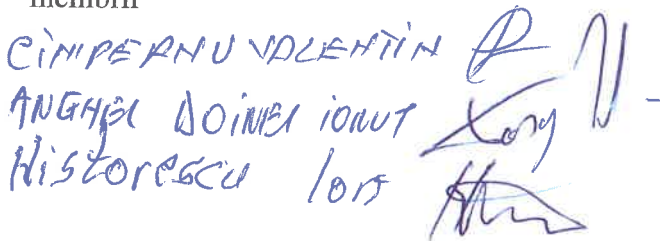 membrii
CIMPEANU VALENTIN
ANGHEL DOINEL IONUT
Nistorescu Ion